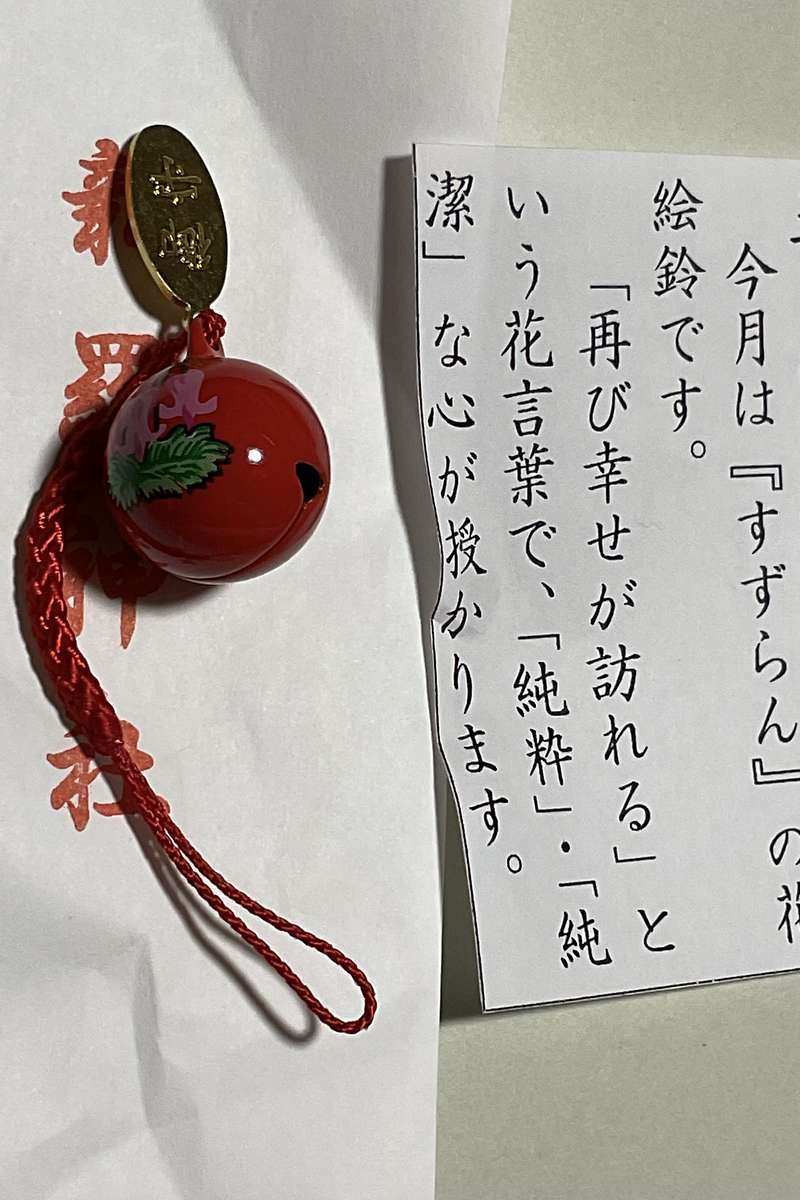 今月は『すずらん』の花
絵鈴です。
「再び幸せが訪れる」と
いう花言葉で、「純粋」・「純
潔」な心が授かります。
新羅神社